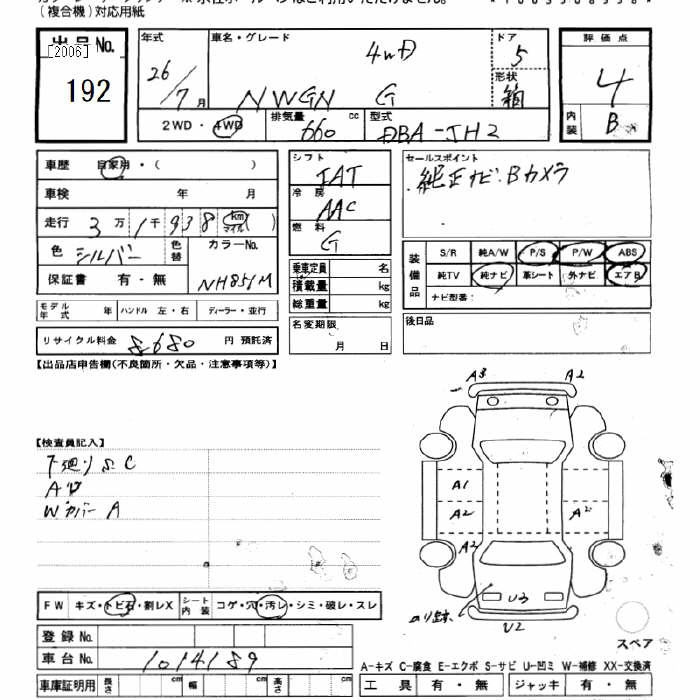 (複合機)対応用紙
出品No.
[2006]
192
年式
26/7月
車名・グレード
4WD
NWGN G
ドア
5
形状
箱
評価点
4
内装
B
2WD・4WD
排気量 660 cc
型式 DBA-JH2
車歴 自家用・( )
車検 年 月
走行 3万1千938 (km マイル)
色 シルバー
色替
カラーNo.
NH851M
保証書 有・無
モデル年式 年
ハンドル 左・右
ディーラー・並行
リサイクル料金 8680 円 預託済
シフト
IAT
冷房
AAC
燃料
G
乗車定員 名
積載量 kg
総重量 kg
名変期限
月 日
セールスポイント
純正ナビ.Bカメラ
装備品
S/R 純A/W P/S P/W ABS
純TV 純ナビ 革シート 外ナビ エアB
ナビ型番:
後日品
【出品店申告欄(不良箇所・欠品・注意事項等)】
【検査員記入】
下廻りS.C
Wカバー A
A3 A2
A1
A2 A2
A2
U3
U2
スペア
FW キズ・トビ石・割レX
シート内装 コゲ・穴・汚レ・シミ・破レ・スレ
登録No.
車台No. 1014189
車庫証明用 長さ cm 幅 cm 高さ cm
A-キズ C-腐食 E-エクボ S-サビ U-凹ミ W-補修 XX-交換済
工具 有・無 ジャッキ 有・無